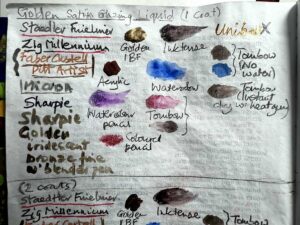 Golden Satin Glazing Liquid (1 Coat)
Staedtler Fineliner
Zig Millennium
Golden
IBF
Inktense
Uniball X
Faber Castell
Pitt Artist
Tombow
(No
water)
Acrylic
Watershow
Micron
Sharpie
Watercolour
pencil
Tombow
Tombow
(Instant
dry w heatgun)
Sharpie
Golden
Coloured
pencil
iridescent
bronze fine
w blender pen
(2 coats)
Staedtler Fineliner
Zig Millennium
Golden
IBF
Inktense
Tombow
Faber Castell